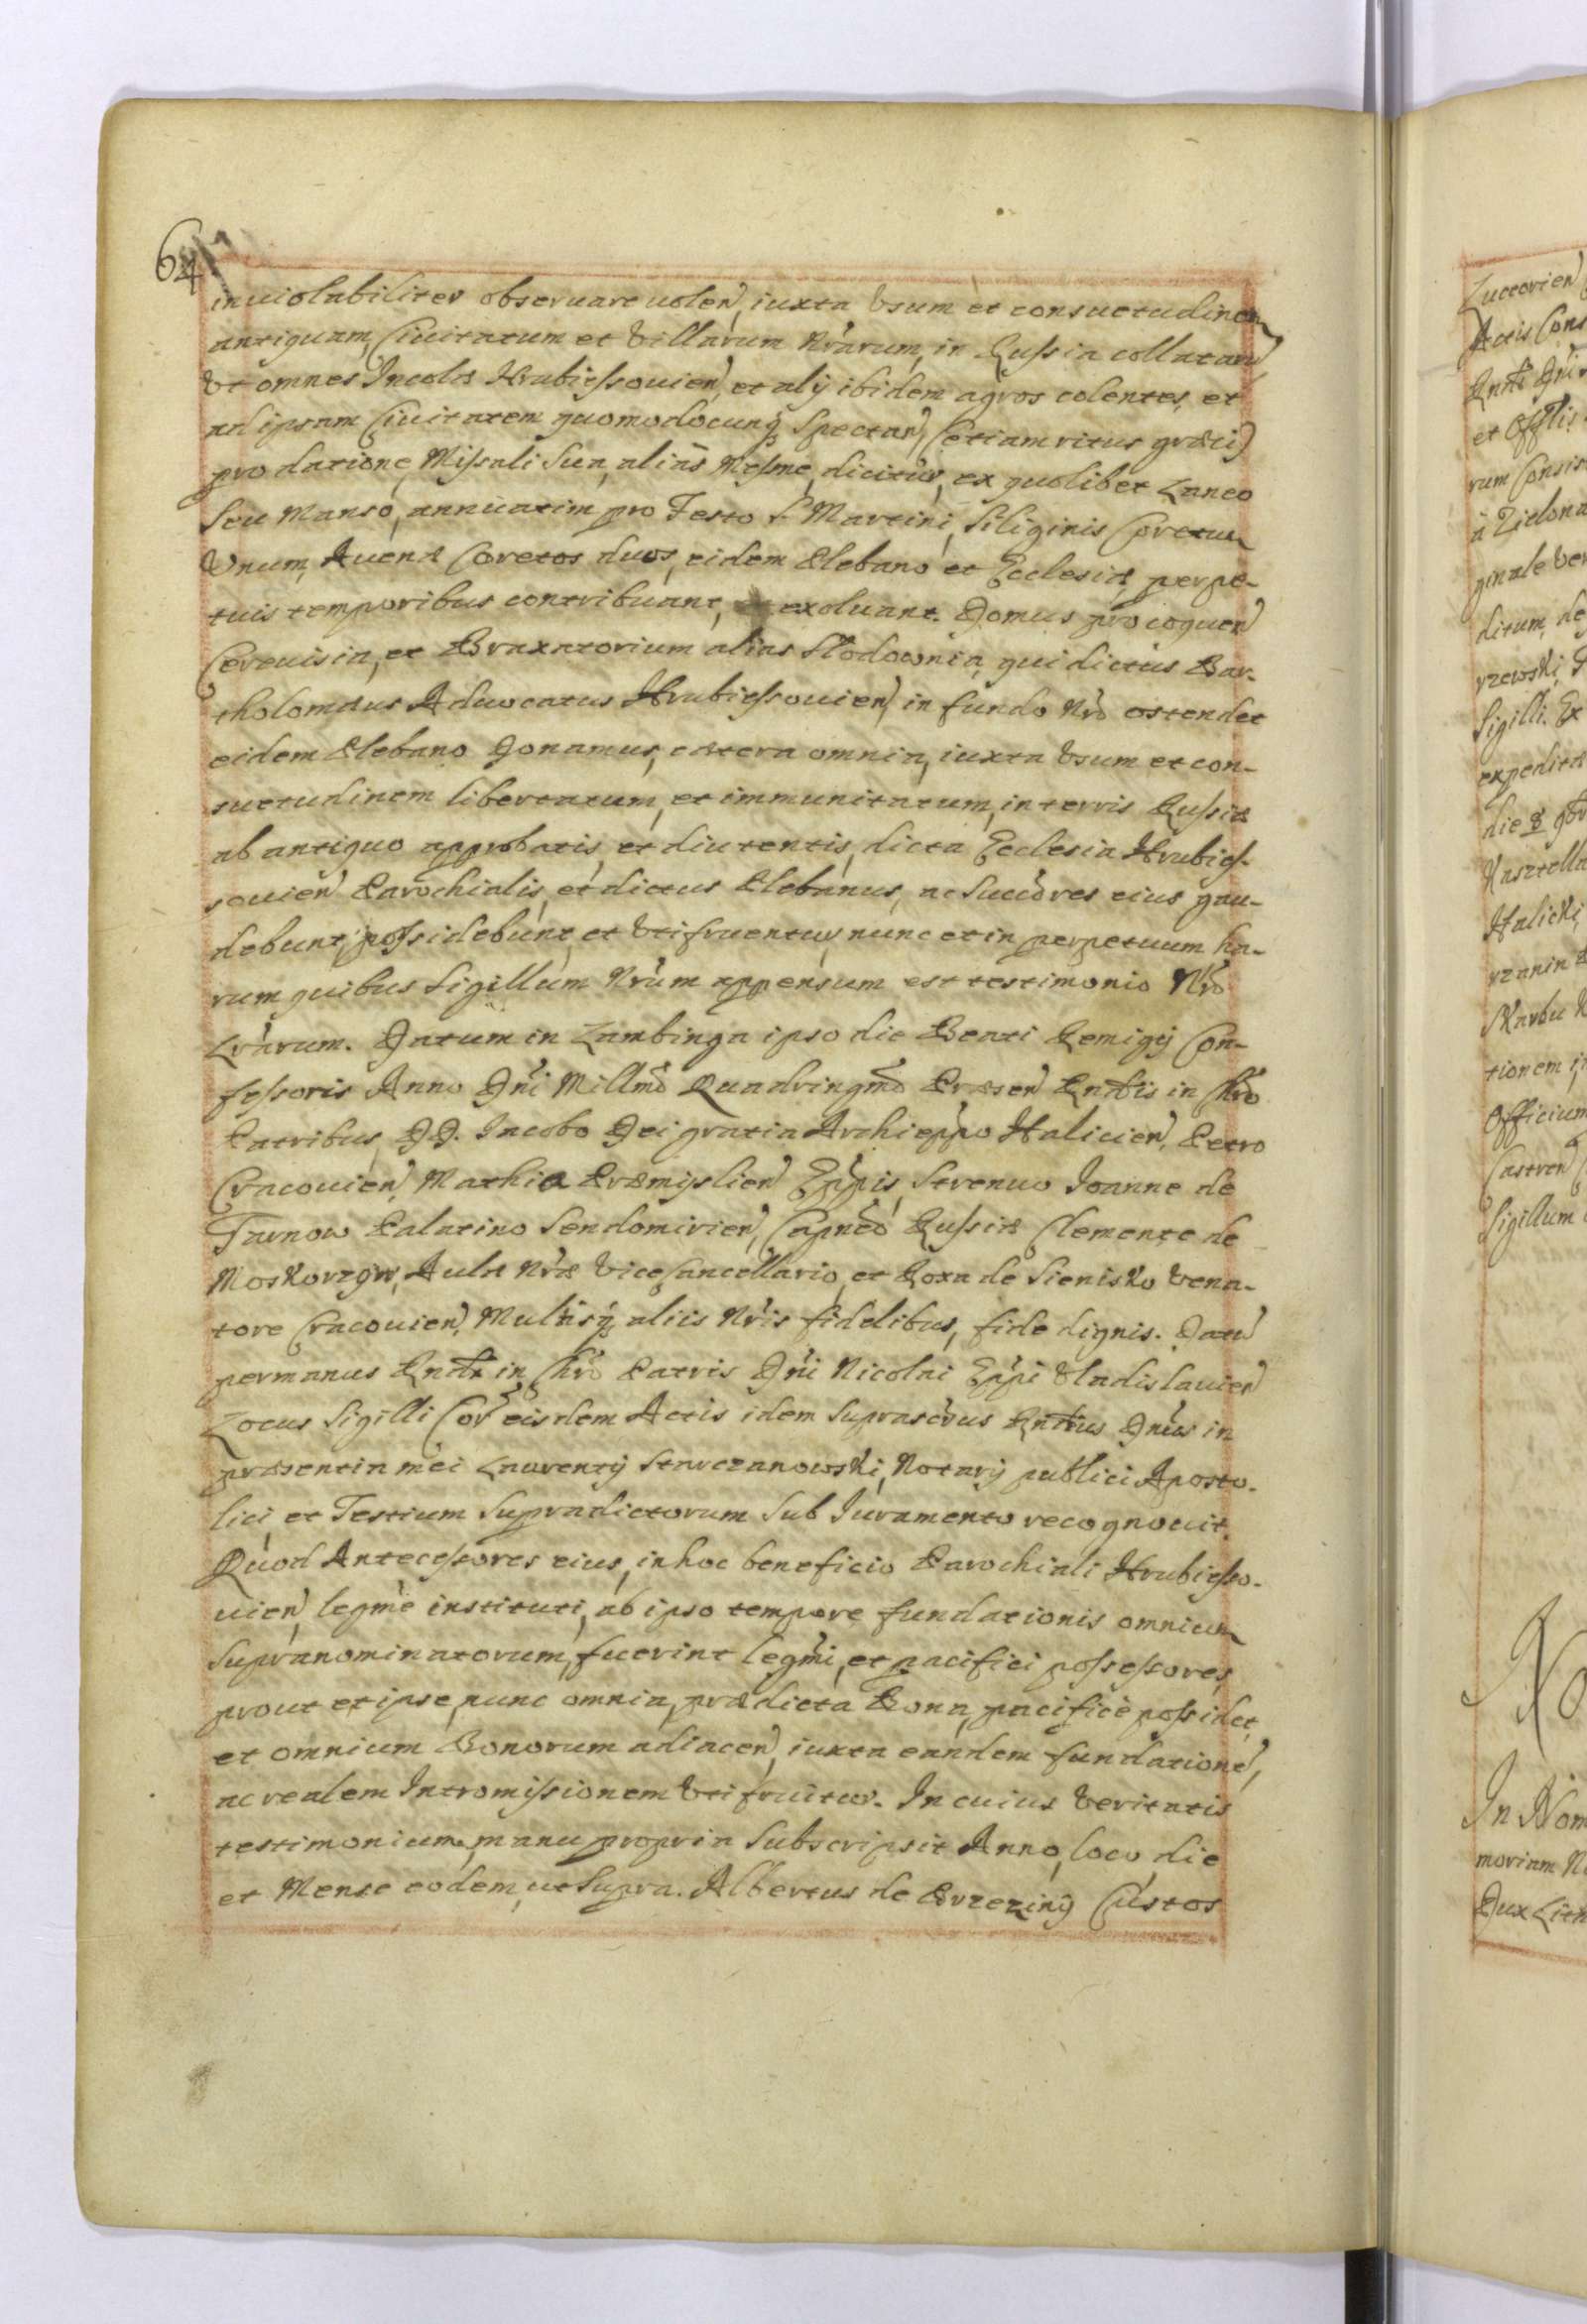 64
inviolabiliter obseruare uolen, iuxta Vsum et consuetudinem
antiquam, Ciuitatum et Villarum Nrarum, in Russia collatam
Vt omnes Incolæ Hrubiessouien, et alij ibidem agros colentes, et
ad ipsam Ciuitatem quomodocunq Spectan, (etiam ritus græci)
pro datione Missali Sua, alias Mesne dicitur, ex quolibet Laneo
Seu Manso, annuatim pro Festo S. Martini, Siliginis Coretum
Vnum, Auenæ Coretos duos, eidem Plebano et Ecclesiæ, perpe-
tuis temporibus contribuant, exoluant. Domus pro coquen
Cereuisia, et Braxatorium alias Slodownia, qui dictus Bar-
tholomæus Aduocatus Hrubiessouien, in fundo Nro ostendet
eidem Plebano Donamus, cætera omnia, iuxta Vsum et con-
suetudinem libertatum, et immunitatum, in terris Russiæ
ab antiquo approbatis, et diu tentis, dicta Ecclesia Hrubies-
souien Parochialis, et dictus Plebanus, ac Succores eius gau-
debunt, possidebunt, et Vtifruentur, nunc et in perpetuum ha-
rum quibus Sigillum Nrum appensum est testimonio Nro
Lrarum. Datum in Lambinga ipso die Beati Remigij Con-
fessoris Anno Dni Millmo Quadringmo Præsen Rndis in Chro
Patribus DD. Jacobo Dei gratia Archieppo Halicien, Petro
Cracouien, Mathia Præmyslien Eppis, Strenuo Joanne de
Tarnow Palatino Sendomirien, Capneo Russiæ Clemente de
Moskorzow, Aulæ Nræ Vicecancellario, et Roxa de Sienisko Vena-
tore Cracouien, Multisq aliis Nris fidelibus, fide dignis. Datu
per manus Rndi in Chro Patris Dni Nicolai Eppi Vladislauien
Locus Sigilli Cor eisdem Actis idem Suprascrus Rndus Dnus in
præsentia mei Laurentij Starczanowski, Notarij publici Aposto-
lici et Testium Supradictorum Sub Iuramento recognouit
Quod Antecessores eius, in hoc beneficio Parochiali Hrubiesso-
uien, legme instituti, ab ipso tempore fundationis omnium
Supranominatorum, fuerint legmi, et pacifici possessores,
prout et ipse, nunc omnia, prædicta Bona, pacifice possidet,
et omnium Bonorum adiacen, iuxta eandem fundatione,
ac realem Intromissionem Vtifruitur. In cuius Veritatis
testimonium, manu propria Subscripsit Anno, loco die
et Mense eodem, ut Supra. Albertus de Brzeziny Custos
Luceorien
Actis Cons
Rndi Dni
et Offlis
rum Consis
à Zielona
ginale Ver
ditum, de
rzewski,
Sigilli. Ex
expedita
die 8 qbr
Kasztella
Halicki,
rzanin
Skarbu
tionem
Officium
Castren
Sigillum
In Nom
moriam
Dux Lith